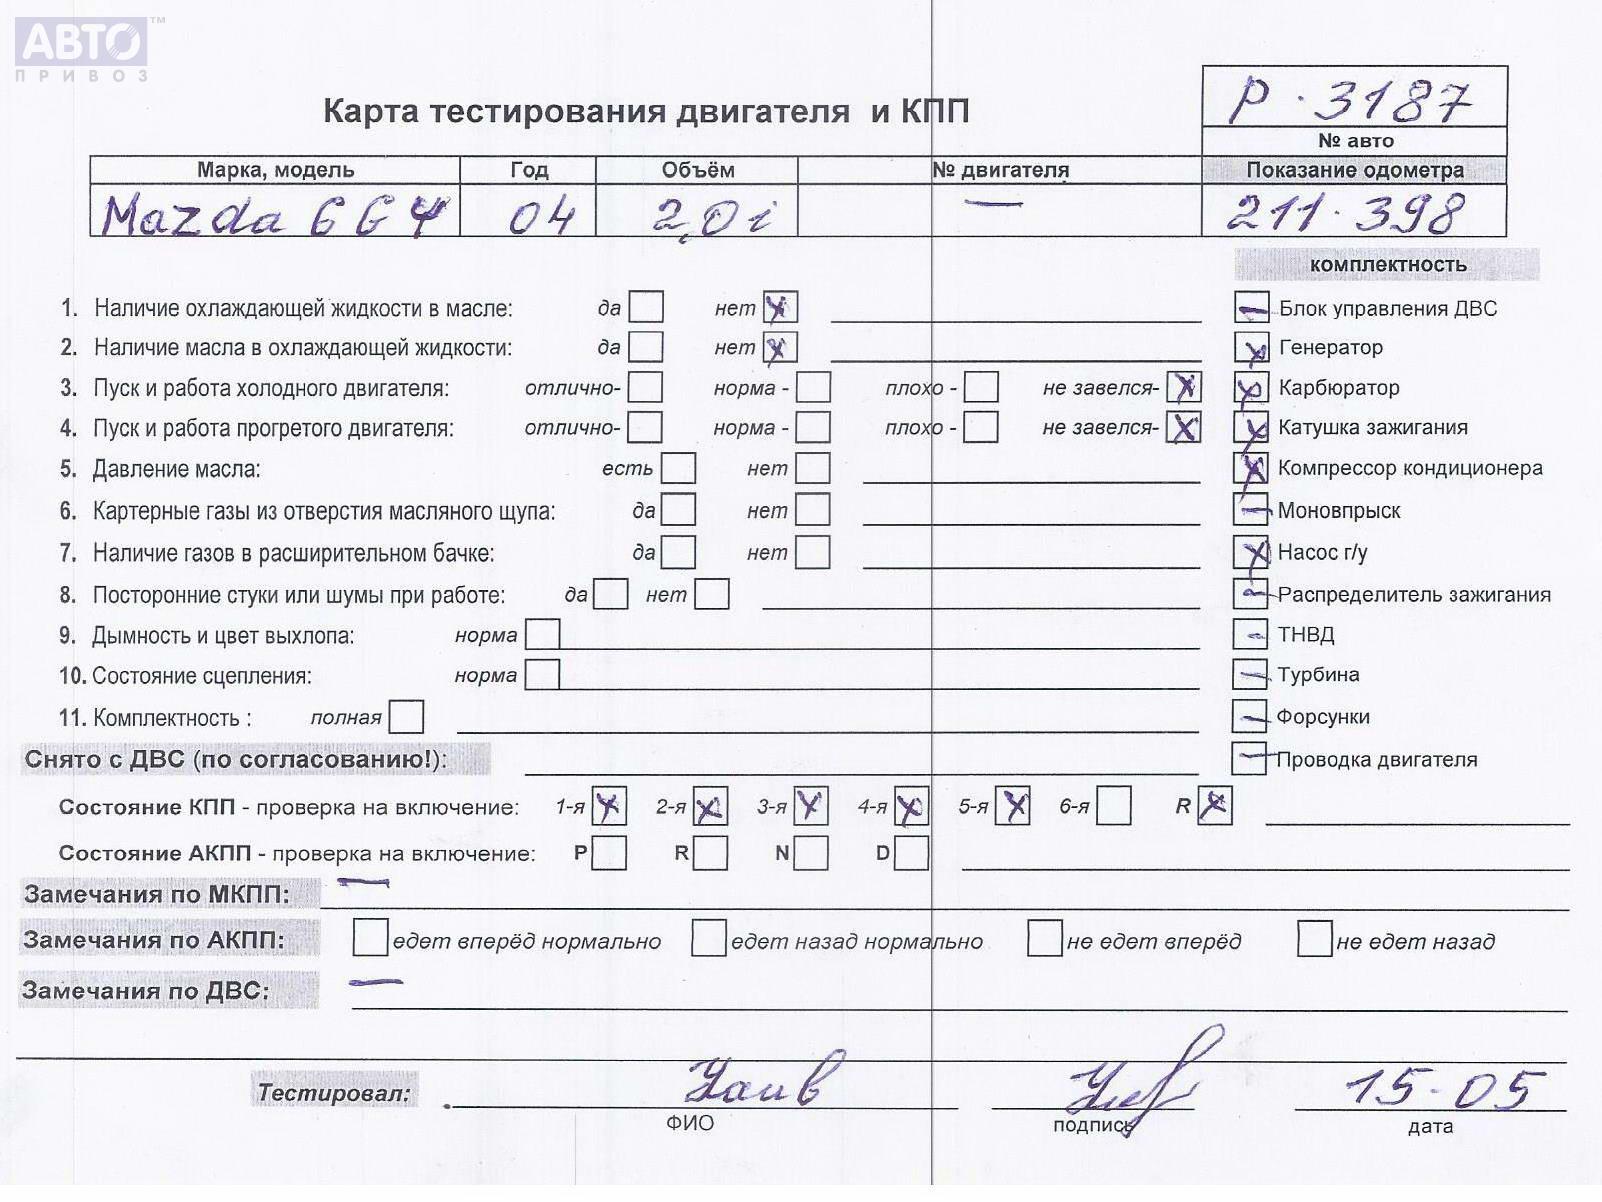 АВТО™
ПРИВОЗ
Р · 3187
Карта тестирования двигателя и КПП
№ авто
Марка, модель Год Объём № двигателя Показание одометра
Mazda 6 G4 04 2,0i — 211·398
комплектность
1. Наличие охлаждающей жидкости в масле: да нет x — Блок управления ДВС
2. Наличие масла в охлаждающей жидкости: да нет x x Генератор
3. Пуск и работа холодного двигателя: отлично- норма - плохо - не завелся- x x Карбюратор
4. Пуск и работа прогретого двигателя: отлично- норма - плохо - не завелся- x x Катушка зажигания
5. Давление масла: есть нет x Компрессор кондиционера
6. Картерные газы из отверстия масляного щупа: да нет — Моновпрыск
7. Наличие газов в расширительном бачке: да нет x Насос г/у
8. Посторонние стуки или шумы при работе: да нет — Распределитель зажигания
9. Дымность и цвет выхлопа: норма — ТНВД
10. Состояние сцепления: норма — Турбина
11. Комплектность : полная — Форсунки
Снято с ДВС (по согласованию!): — Проводка двигателя
Состояние КПП - проверка на включение: 1-я x 2-я x 3-я x 4-я x 5-я x 6-я R x
Состояние АКПП - проверка на включение: P R N D
Замечания по МКПП: —
Замечания по АКПП: едет вперёд нормально едет назад нормально не едет вперёд не едет назад
Замечания по ДВС: —
Тестировал: 15-05
ФИО подпись дата